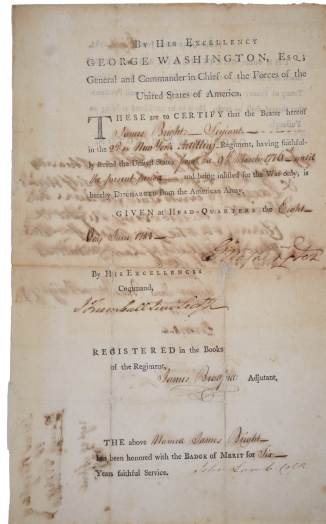 By His EXCELLENCY
GEORGE WASHINGTON, Esq;
General and Commander in Chief of the Forces of the
United States of America.
THESE are to CERTIFY that the Bearer hereof
James Bright Serjeant
in the 2d New York Artillery Regiment, having faithful-
ly served the United States from the 9th March 1776 until
the present period and being inlisted for the War only, is
hereby DISCHARGED from the American Army.
GIVEN at HEAD-QUARTERS the Eight
Day June 1783
G Washington
By HIS EXCELLENCY'S
Command,
J Trumbull Jun
REGISTERED in the Books
of the Regiment,
James Adjutant,
THE above Named James Bright
has been honored with the BADGE of MERIT for Six
Years faithful Service. John Lamb Coll